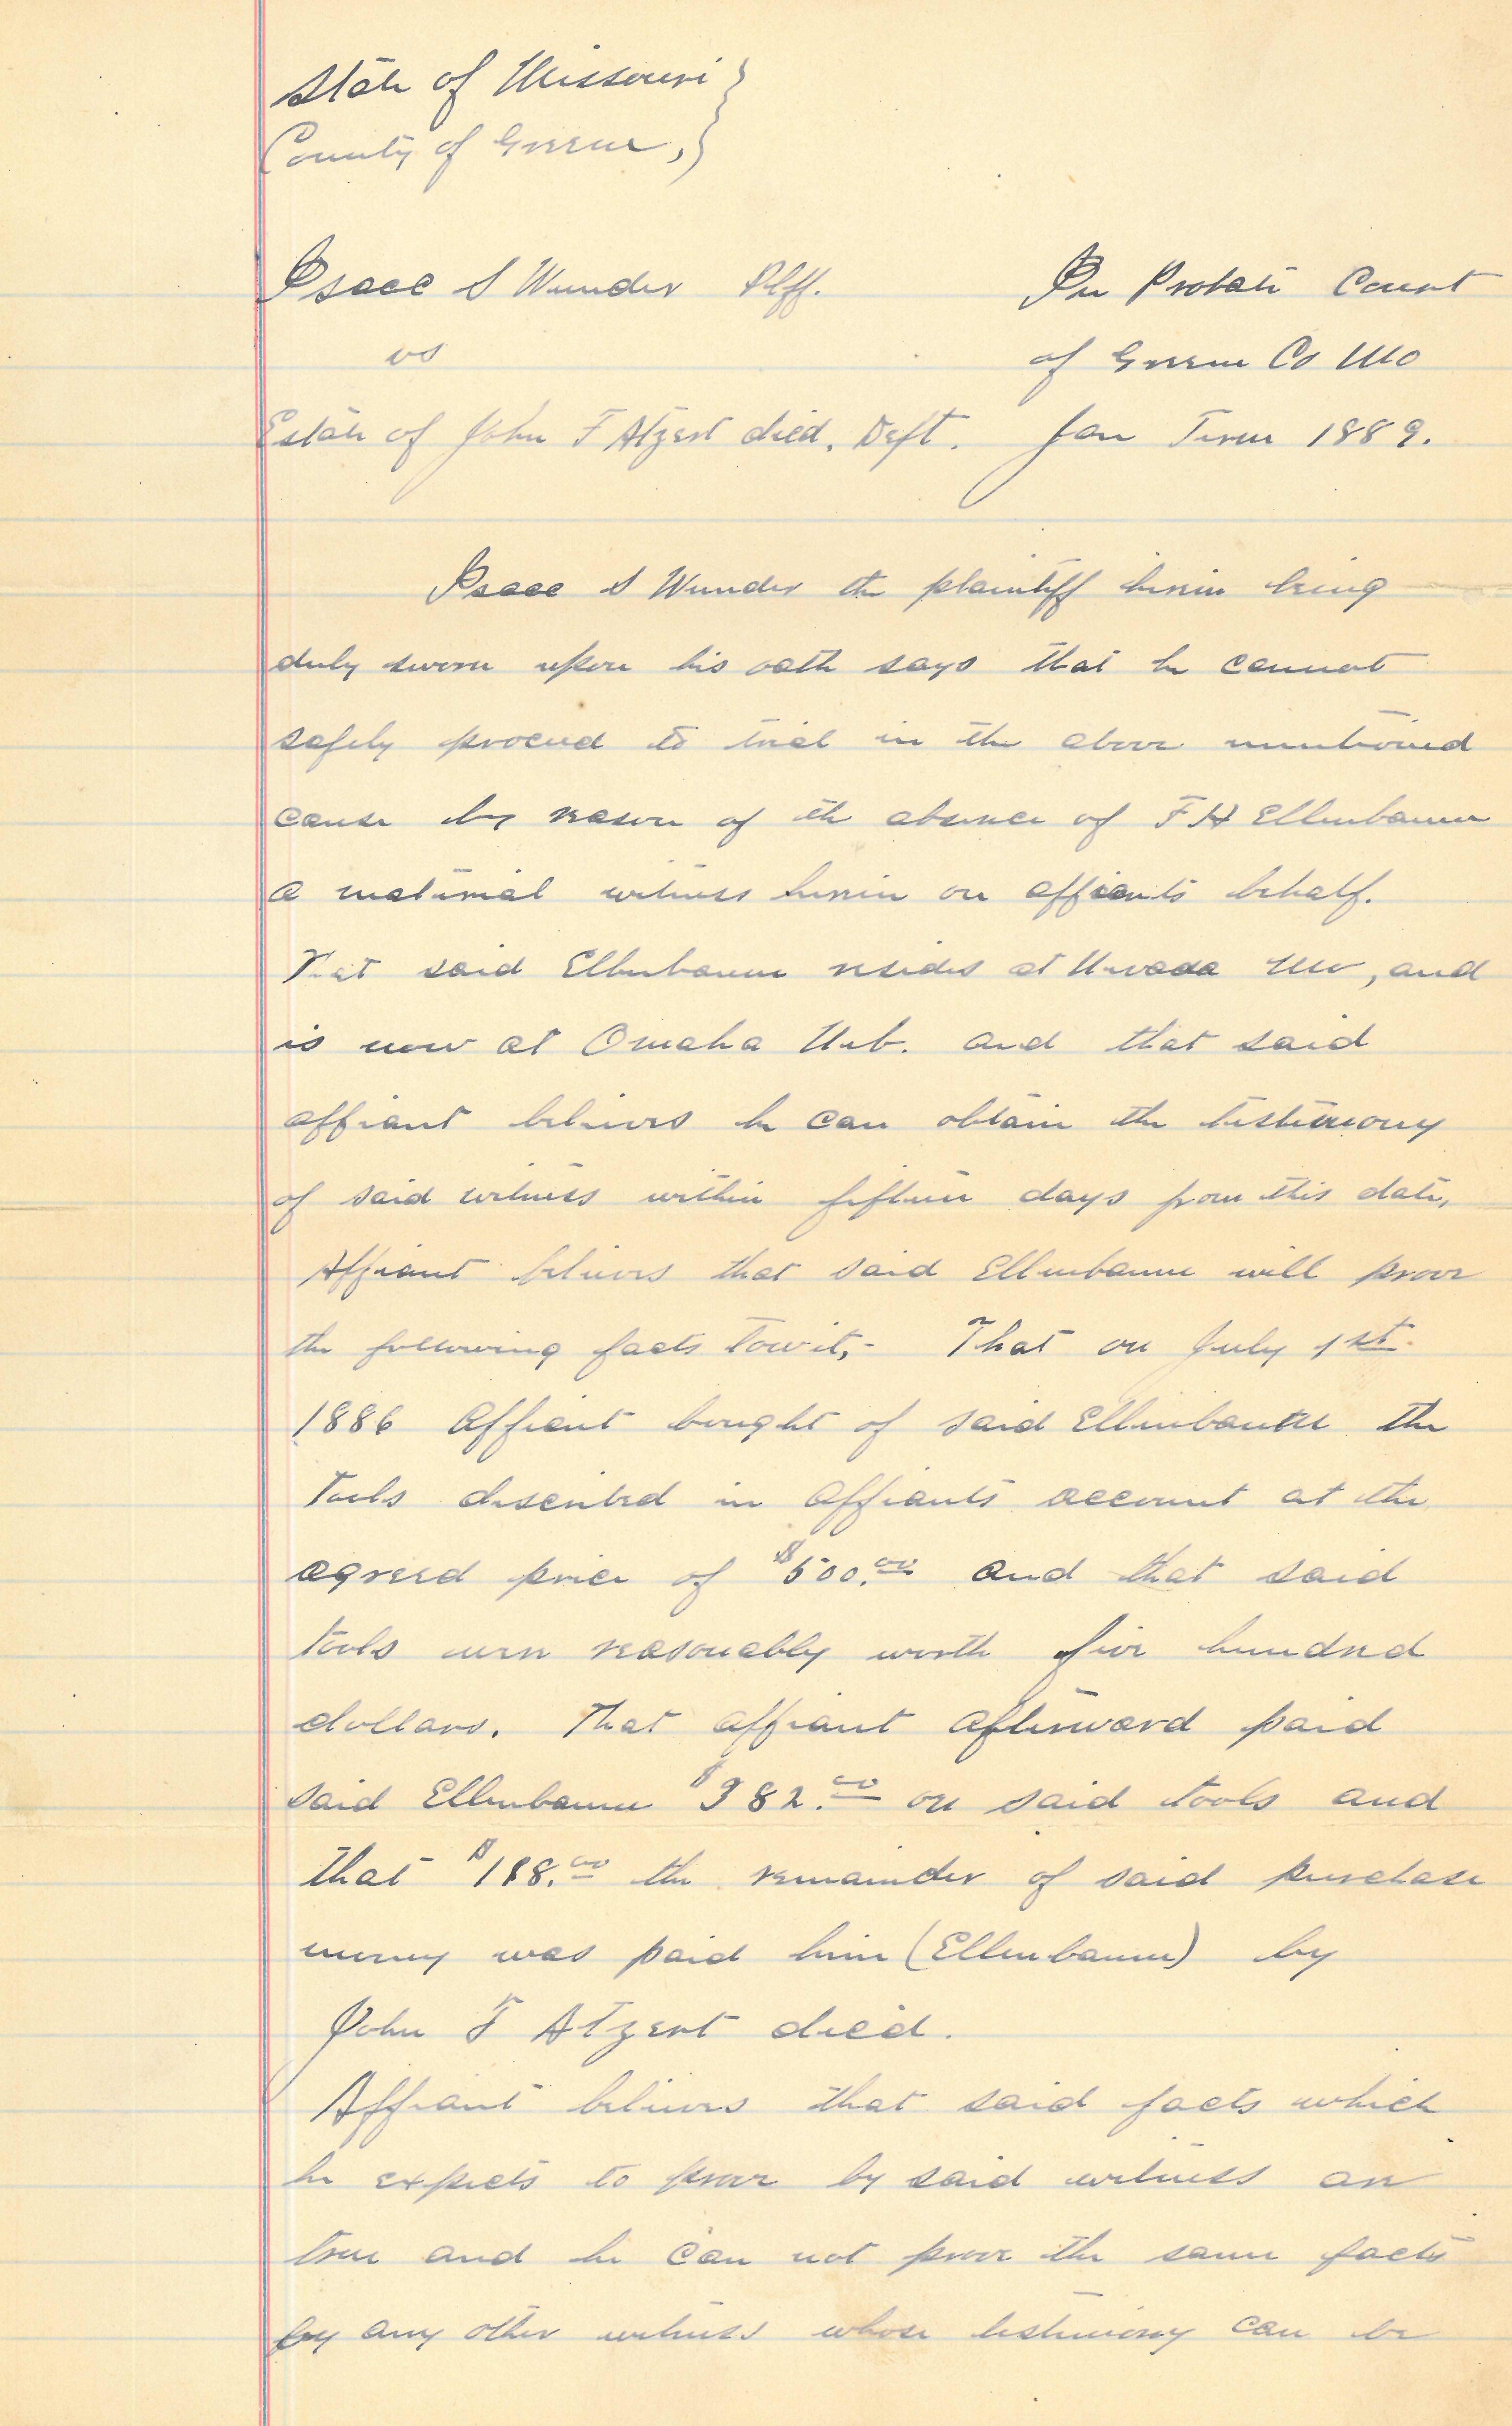 State of Missouri }
County of Greene, }
Isaac S Wunder Plff. In Probate Court
vs of Greene Co Mo
Estate of John F Atzert died. Deft. Jan Term 1889.
Isaac S Wunder the plaintiff herein being
duly sworn upon his oath says that he cannot
safely proceed to trial in the above mentioned
cause by reason of the absence of F H Ellenbaum
a material witness herein on affiants behalf.
That said Ellenbaum resides at Nevada Mo, and
is now at Omaha Neb. and that said
affiant believes he can obtain the testimony
of said witness within fifteen days from this date,
Affiant believes that said Ellenbaum will prove
the following facts towit,- That on July 1st.
1886 affiant bought of said Ellenbaum the
tools described in affiants account at the
agreed price of $500.00 and that said
tools were reasonably worth five hundred
dollars. That affiant afterward paid
said Ellenbaum $382.00 on said tools and
that $118.00 the remainder of said purchase
money was paid him (Ellenbaum) by
John F Atzert died.
Affiant believes that said facts which
he expects to prove by said witness are
true and he can not prove the same facts
by any other witness whose testimony can be